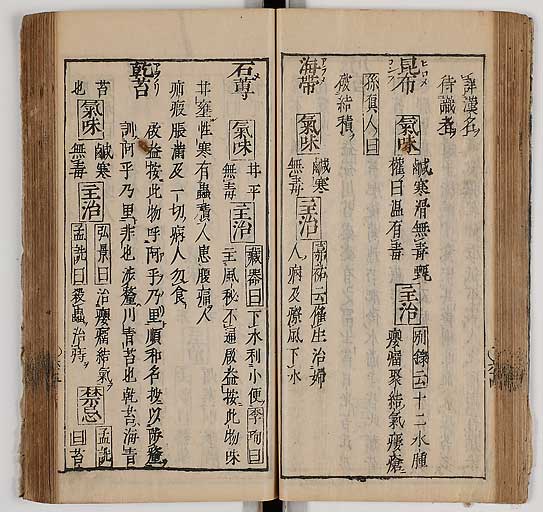 詳漢名
待識者
昆布 ヒロメ コンフ
氣味 鹹寒滑無毒甄
權曰温有毒 主治 別錄云十二水腫
癭瘤聚結氣瘻瘡
孫眞人曰
破結積
海帶 アラメ
氣味 鹹寒
無毒 主治 嘉祐云催生治婦
人病及療風下水
石蓴
氣味 甘平
無毒 主治 藏器曰下水利小便李珣曰
主風秘不通啟益按此物味
甘雍性寒有蟲瀆人患腹痛人
痏瘕脹滿及一切病人勿食
乾苔 アヲノリ
啟益按此物呼阿乎乃里順和名投以陟釐
訓阿乎乃里非也陟釐川青苔也乾苔海青
苔
也
氣味 鹹寒
無毒 主治 弘景曰治癭瘤結氣
孟詵曰殺蟲治痔
禁忌 孟詵
曰苔